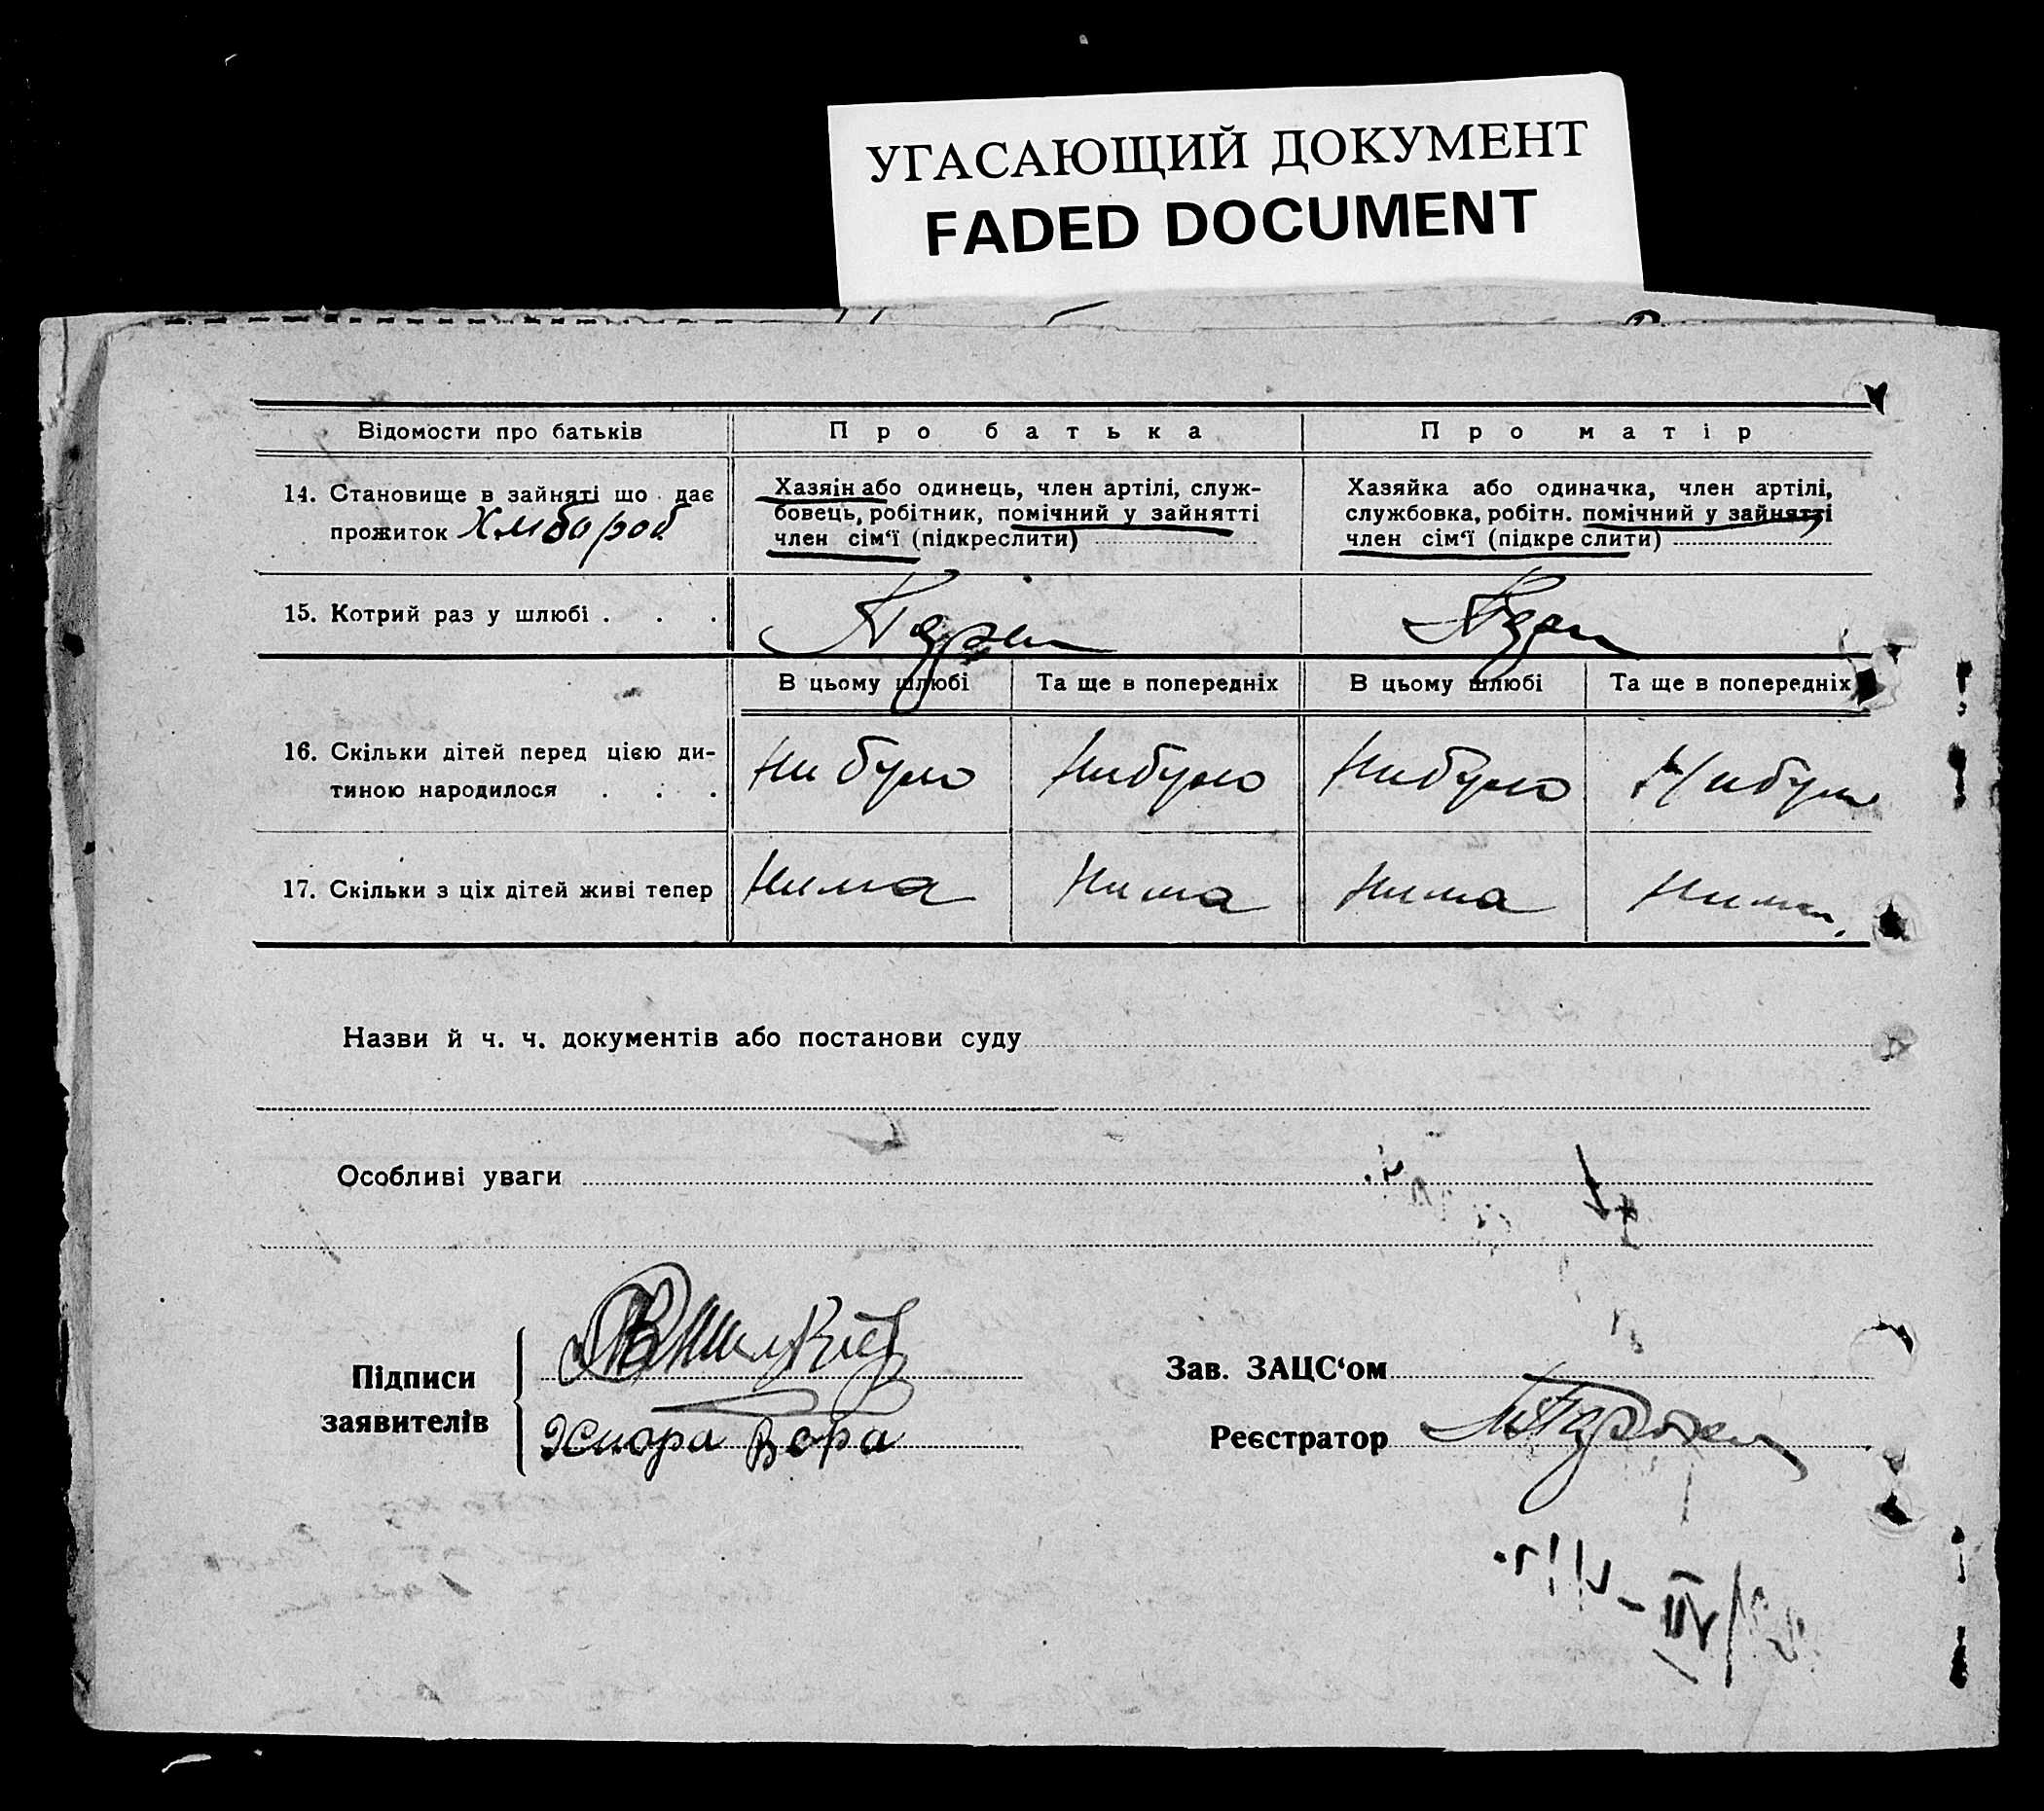 УГАСАЮЩИЙ ДОКУМЕНТ
FADED DOCUMENT
Відомости про батьків
Про батька
Про матір
14. Становище в зайняті що дає
прожиток Хлібороб
Хазяін або одинець, член артілі, служ-
бовець, робітник, помічний у зайнятті
член сім‘ї (підкреслити)
Хазяйка або одиначка, член артілі,
службовка, робітн. помічний у зайнятті
член сім‘ї (підкреслити)
15. Котрий раз у шлюбі . . .
В цьому шлюбі
Та ще в попередніх
В цьому шлюбі
Та ще в попередніх
16. Скільки дітей перед цією ди-
тиною народилося . . .
Ни було
Нибуло
Нибуло
Нибуло
17. Скільки з ціх дітей живі тепер
Нима
Нима
Нима
Нима
Назви й ч. ч. документів або постанови суду
Особливі уваги
Підписи
заявителів
Вера
Зав. ЗАЦС‘ом
Реєстратор